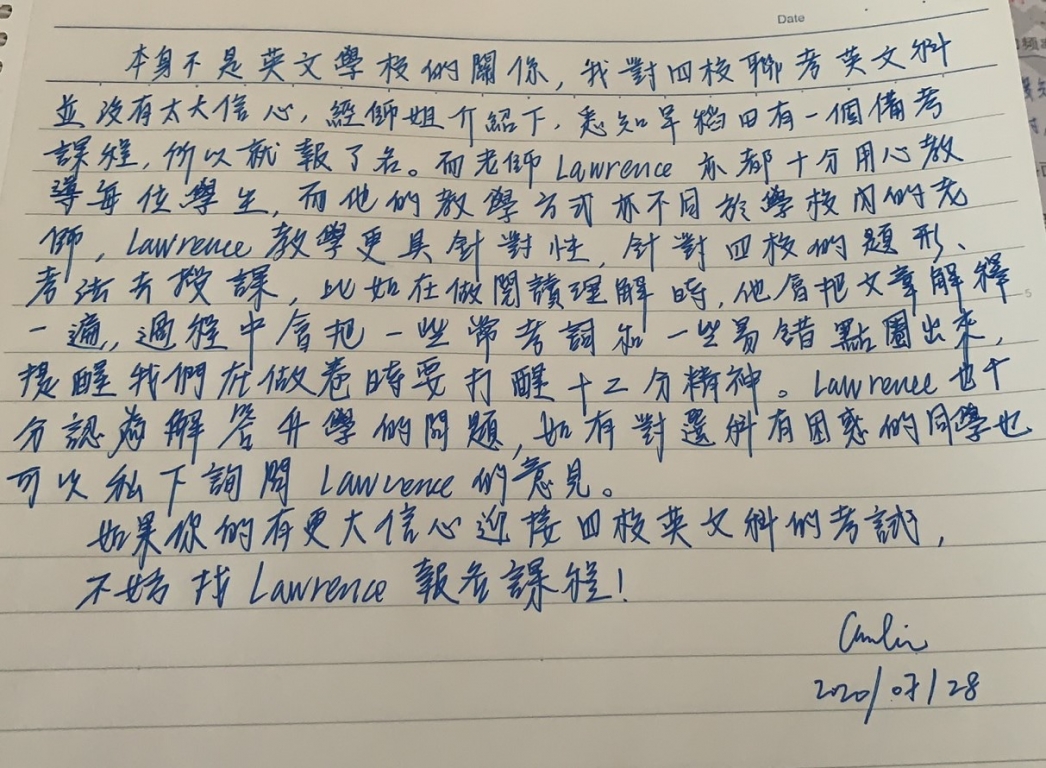 Date
本身不是英文學校的關係,我對四校聯考英文科
並沒有太大信心,經師姐介紹下,悉知早稻田有一個備考
課程,所以就報了名。而老師Lawrence亦都十分用心教
導每位學生,而他的教學方式亦不同於學校內的老
師,Lawrence教學更具針對性,針對四校的題形、
考法去授課,比如在做閱讀理解時,他會把文章解釋
一遍,過程中會把一些常考詞和一些易錯點圈出來,
提醒我們在做卷時要打醒十二分精神。Lawrence也十
分認為解答升學的問題,如有對選科有困惑的同學也
可以私下詢問Lawrence的意見。
如果你的有更大信心迎接四校英文科的考試,
不妨找Lawrence報名課程!
2020/07/28
5